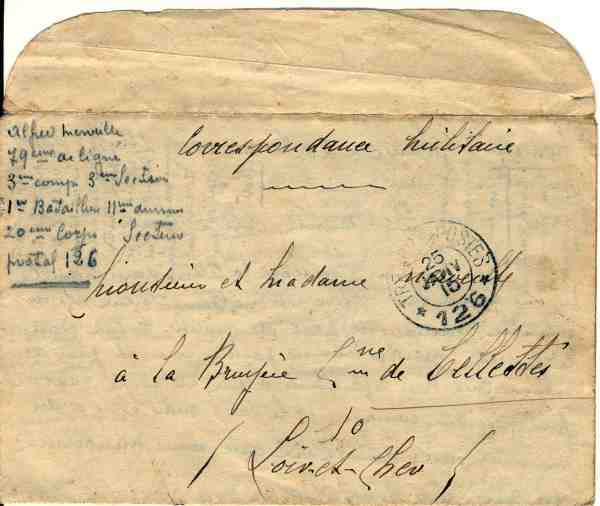 Alfred Merville
79eme de ligne
3eme comp 3eme Section
1er Bataillon 11eme division
20eme Corps Secteur
postal 126
Correspondance Militaire
TRESOR ET POSTES
25
15
* 126 *
Monsieur et Madame Merville
à la Bruyère Cne de Cellettes
10
( Loir-et-Cher )